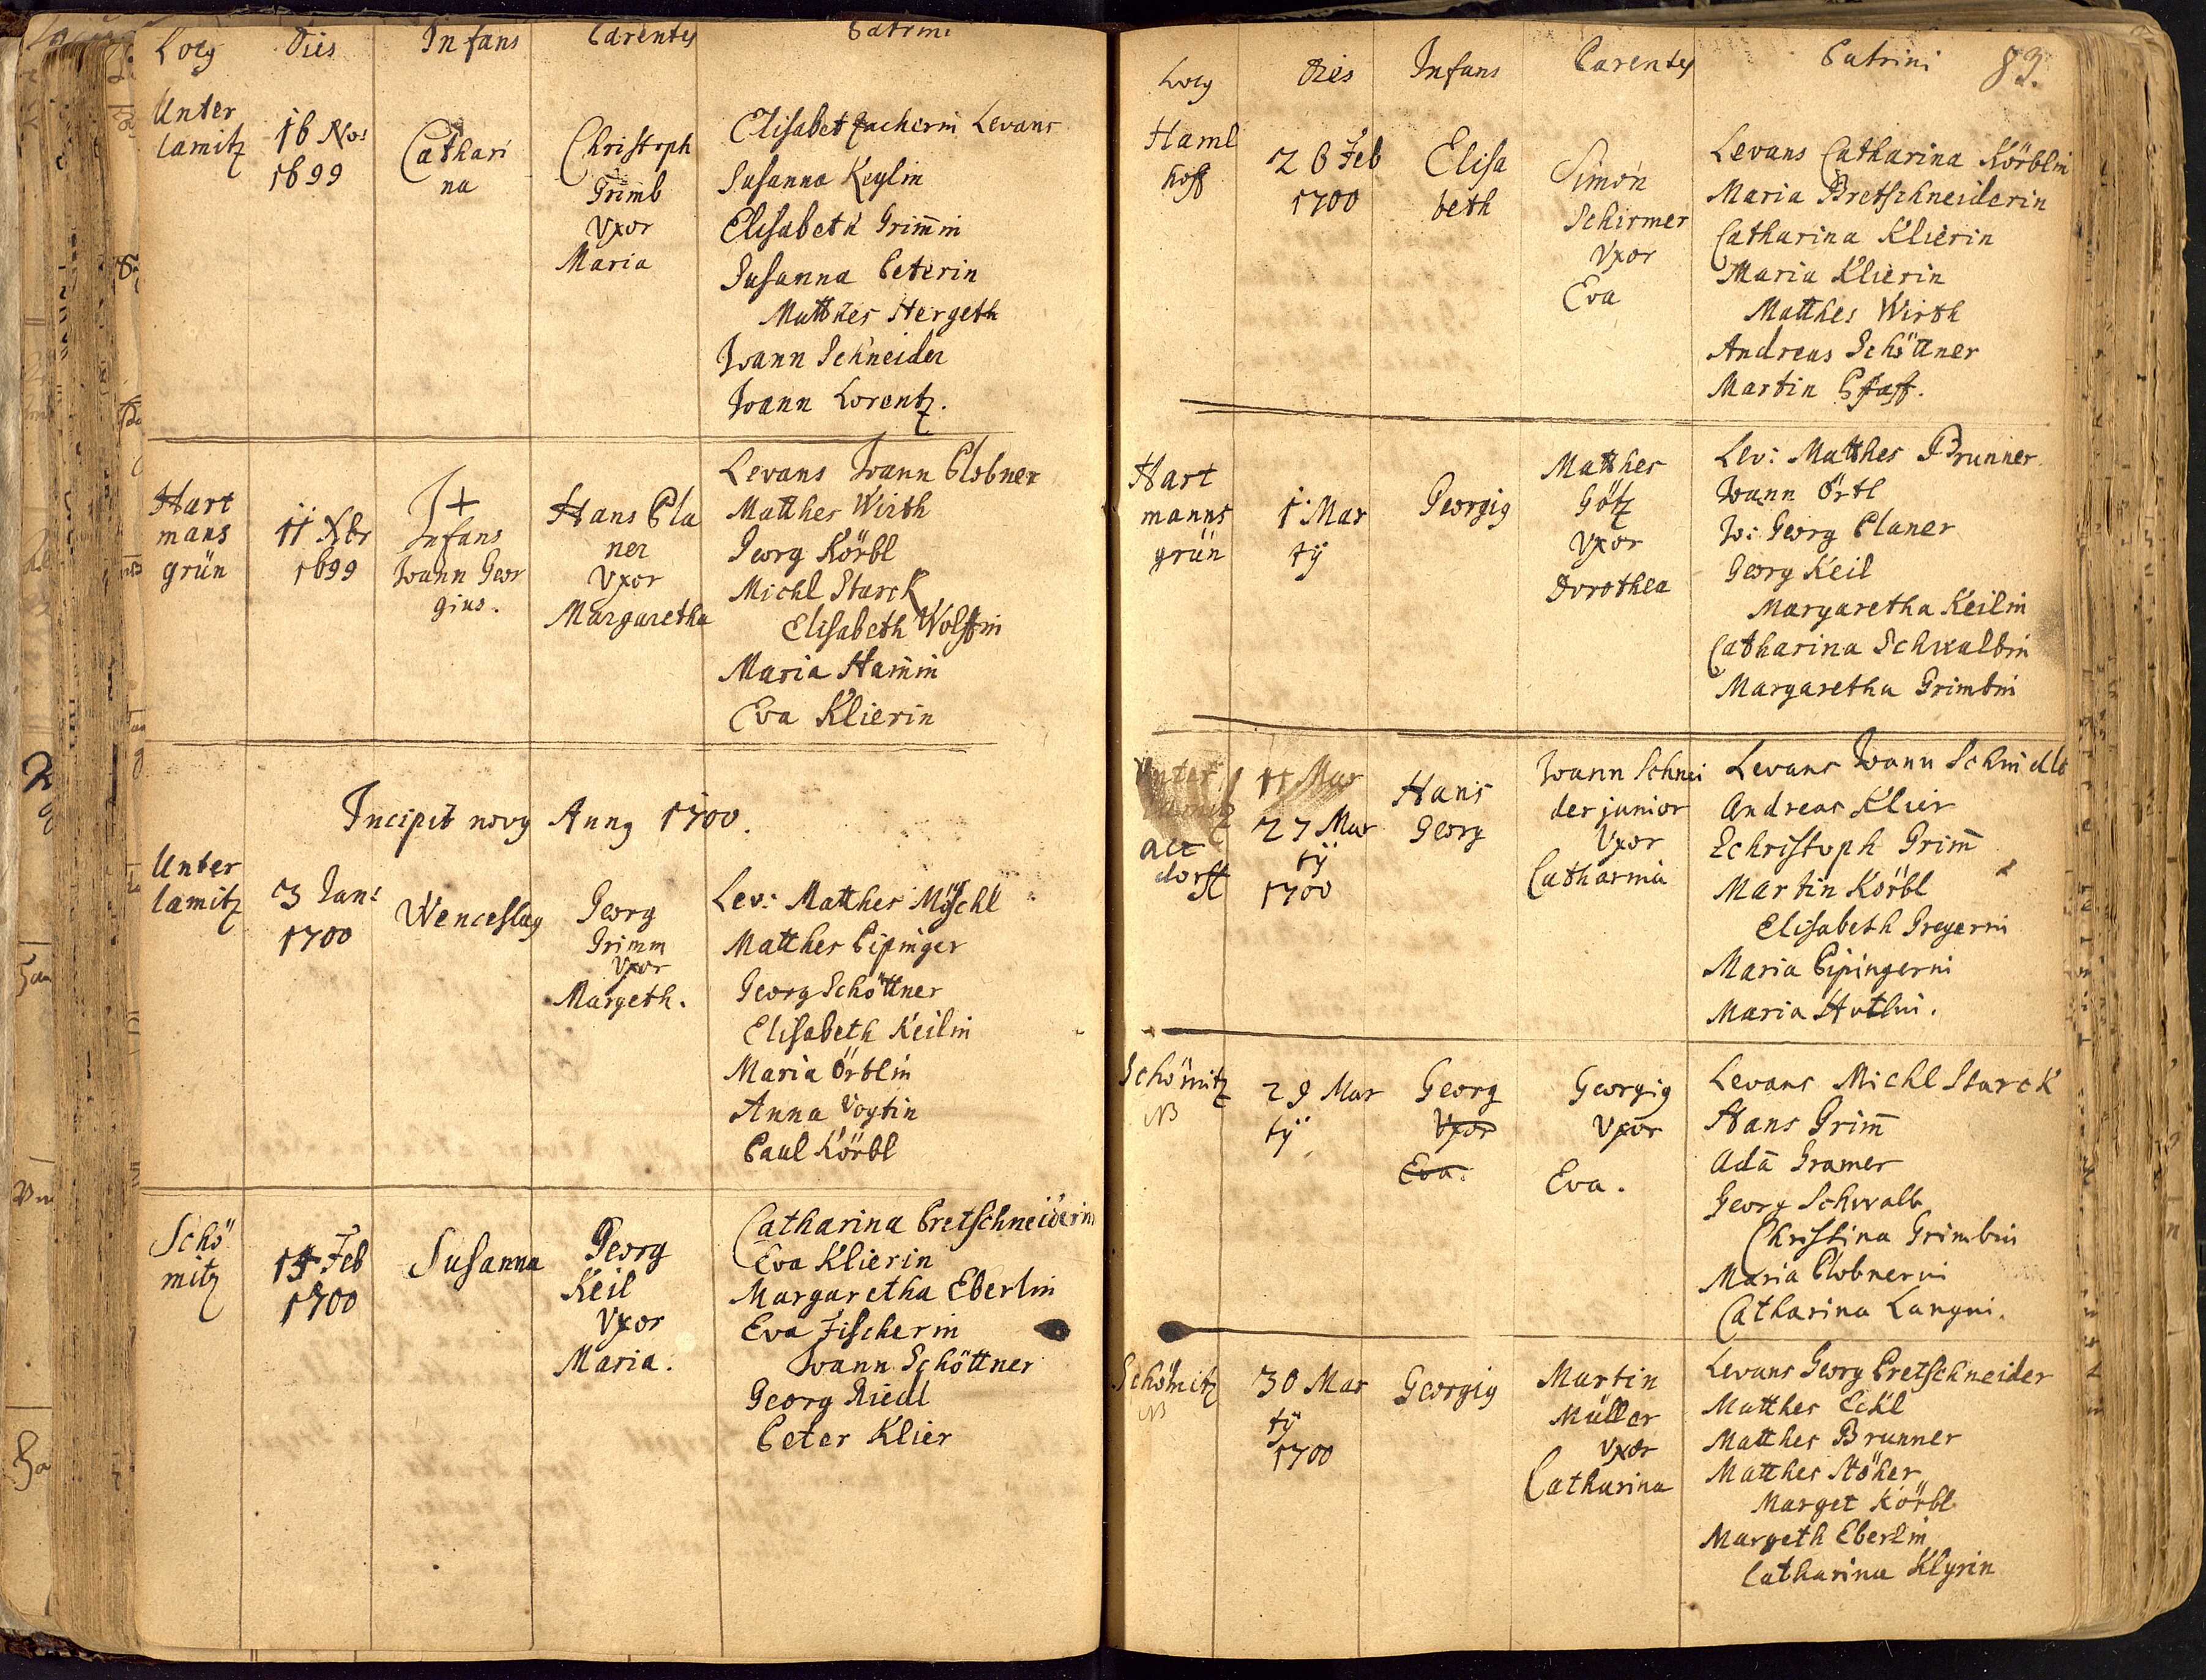 Locus Dies Infans Parentes Patrini
Unter
lamitz
16 No:
1699
Cathari
na
Christoph
Grimb
Vxor
Maria
Elisabet Zacherin Levans
Susanna Keylin
Elisabeth Grim̄in
Susanna Peterin
Matthes Hergeth
Joann Schneider
Joann Lorentz.
Hart
mans
grün
11 Xbr
1699
Infans
Joann Geor
gius.
Hans Pla
ner
Vxor
Margaretha
Levans Joann Plobner
Matthes Wirth
Georg Körbl
Michl Starck
Elisabeth Wolffin
Maria Ham̄in
Eva Klierin
Incipit novus Annus 1700.
Unter
lamitz
3 Jan:
1700
Wenceslaus
Georg
Grimm
Vxor
Margeth.
Lev: Matthes Möschl
Matthes Pipinger
Georg Schöttner
Elisabeth Keilin
Maria Örtlin
Anna Voytin
Paul Körbl
Schö
mitz
14 Feb
1700
Susanna
Georg
Keil
Vxor
Maria.
Catharina Pretschneiderin
Eva Klierin
Margaretha Eberlin
Eva Fischerin
Joann Schöttner
Georg Riedl
Peter Klier
Locus Dies Infans Parentes Patrini 83.
Haml
hoff
26 Feb
1700
Elisa
beth
Simon
Schirmer
Vxor
Eva
Levans Catharina Körblin
Maria Bretschneiderin
Catharina Klierin
Maria Klierin
Matthes Wirth
Andreas Schöttner
Martin Pfaff.
Hart
manns
grün
1 Mar
tÿ
Georgius
Matthes
Götz
Vxor
Dorothea
Lev: Matthes Brunner
Joann Örtl
Jo: Georg Planer
Georg Keil
Margaretha Keilin
Catharina Schwalbin
Margaretha Grimbin
Unter
lamitz
Alt
dorff
11 Mar
27 Mar
tÿ
1700
Hans
Georg
Joann Schnei
der junior
Vxor
Catharina
Levans Joann Schindle
Andreas Klier
Christoph Grim̄
Martin Körbl
Elisabeth Greyerin
Maria Pipingerin
Maria Hutlin.
Schömitz
NB
29 Mar
tÿ
Georg
Vxor
Eva.
Georgius
Vxor
Eva.
Levans Michl Starck
Hans Grim̄
Adā Gramer
Georg Schwalb
Christina Grimbin
Maria Plobnerin
Catharina Langin.
Schömitz
NB
30 Mar
tÿ
1700
Georgius
Martin
Müller
Vxor
Catharina
Levans Georg Pretschneider
Matthes Eckl
Matthes Brunner
Matthes Höher
Marget Körbl
Margeth Eberlin
Catharina Klyrin